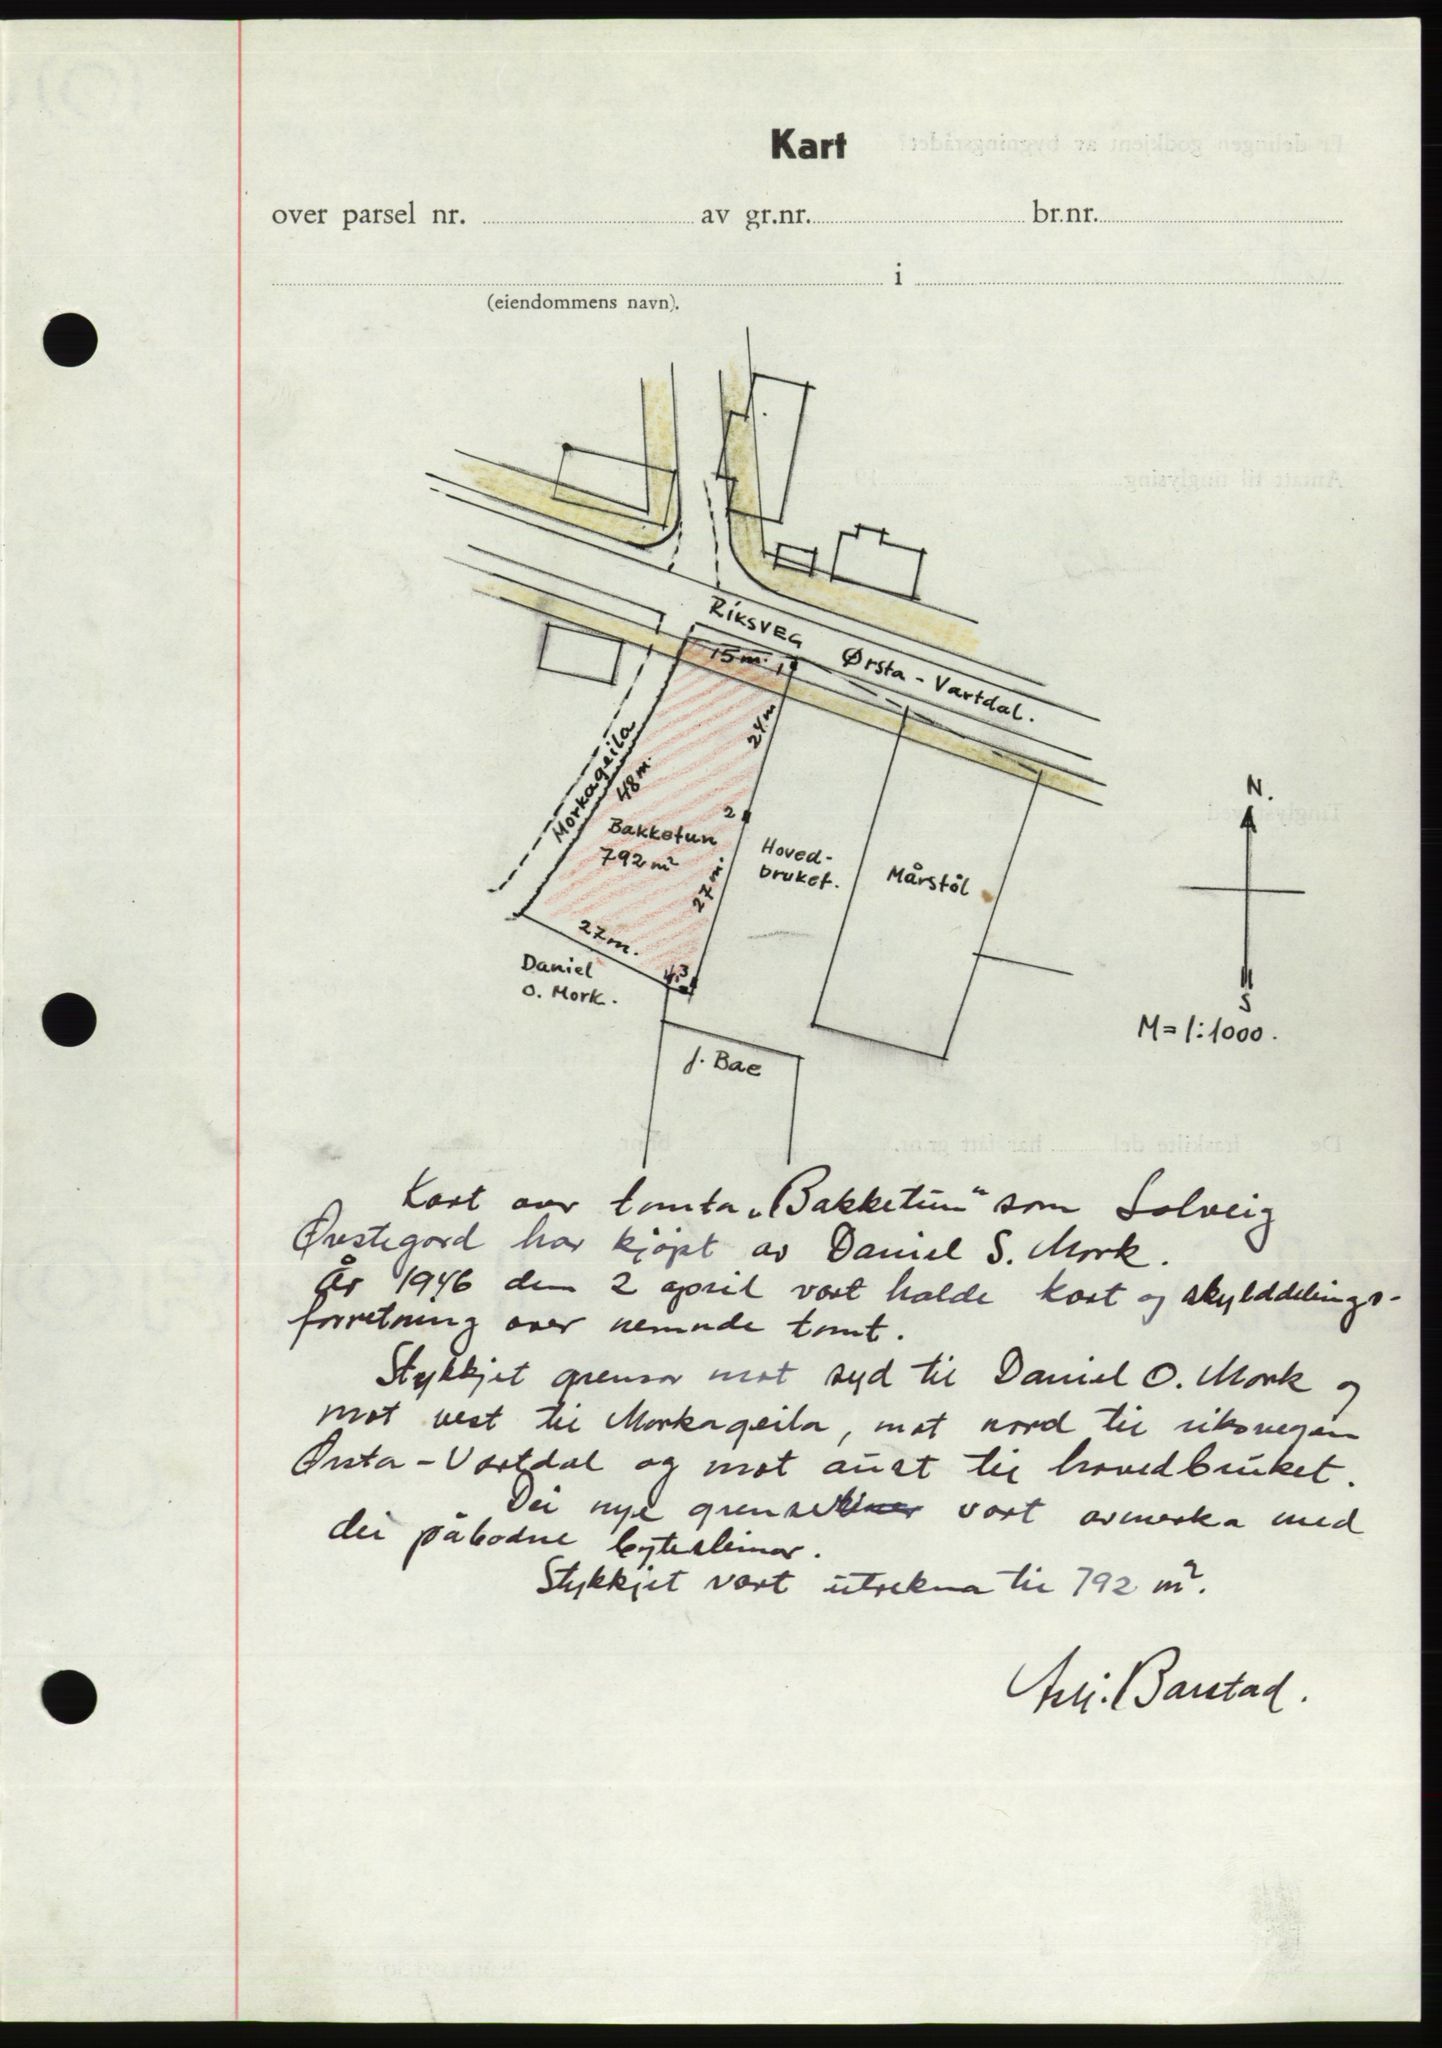 Kart
over parsel nr. av gr.nr. br.nr.
i
(eiendommens navn).
RIKSVEG Ørsta - Vartdal.
15 m. 1
24 m
Morkageila
48 m.
2
Bakketun
792 m²
27 m.
Hoved-
bruket.
Mårstöl
27 m.
4. 3
Daniel
O. Mork.
J. Bae
N.
S
M = 1:1000.
Kart over tomta „Bakketun" som Solveig
Øvstegard har kjöpt av Daniel S. Mork.
År 1946 den 2 april vart halde kart og skylddelings-
forretning over nemnde tomt.
Stykkjet grensar mot syd til Daniel O. Mork og
mot vest til Morkageila, mot nord til riksvegen
Ørsta - Vartdal og mot aust til hovedbruket.
Dei nye vart avmerka med
dei påbodne
Stykkjet vart utrekna til 792 m².
Barstad.